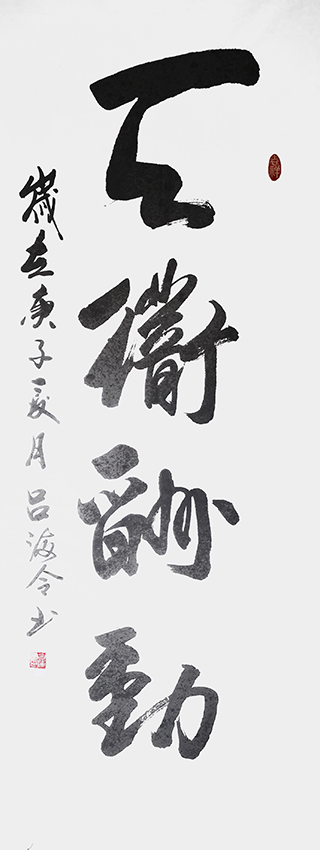 天道酬勤
歲在庚子夏月吕海令书